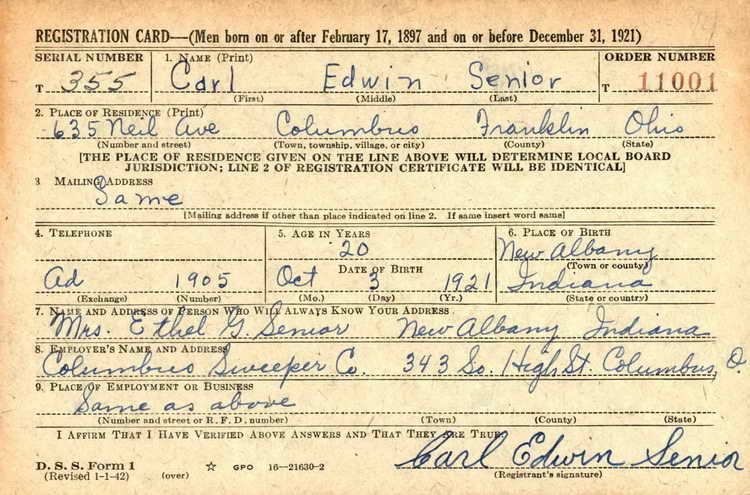 REGISTRATION CARD—(Men born on or after February 17, 1897 and on or before December 31, 1921)
SERIAL NUMBER 1. NAME (Print) ORDER NUMBER
T 355 Carl Edwin Senior T 11001
(First) (Middle) (Last)
2. PLACE OF RESIDENCE (Print)
635 Neil Ave Columbus Franklin Ohio
(Number and street) (Town, township, village, or city) (County) (State)
[THE PLACE OF RESIDENCE GIVEN ON THE LINE ABOVE WILL DETERMINE LOCAL BOARD
JURISDICTION; LINE 2 OF REGISTRATION CERTIFICATE WILL BE IDENTICAL]
3 MAILING ADDRESS
Same
[Mailing address if other than place indicated on line 2. If same insert word same]
4. TELEPHONE 5. AGE IN YEARS 6. PLACE OF BIRTH
20 New Albany
DATE OF BIRTH (Town or county)
Ad 1905 Oct 3 1921 Indiana
(Exchange) (Number) (Mo.) (Day) (Yr.) (State or country)
7. NAME AND ADDRESS OF PERSON WHO WILL ALWAYS KNOW YOUR ADDRESS
Mrs. Ethel G. Senior New Albany Indiana
8. EMPLOYER'S NAME AND ADDRESS
Columbus Sweeper Co. 343 So. High St. Columbus, O.
9. PLACE OF EMPLOYMENT OR BUSINESS
Same as above
(Number and street or R. F. D. number) (Town) (County) (State)
I AFFIRM THAT I HAVE VERIFIED ABOVE ANSWERS AND THAT THEY ARE TRUE.
D. S. S. Form 1 Carl Edwin Senior
(Revised 1-1-42) (over) ☆ GPO 16—21630-2 (Registrant's signature)